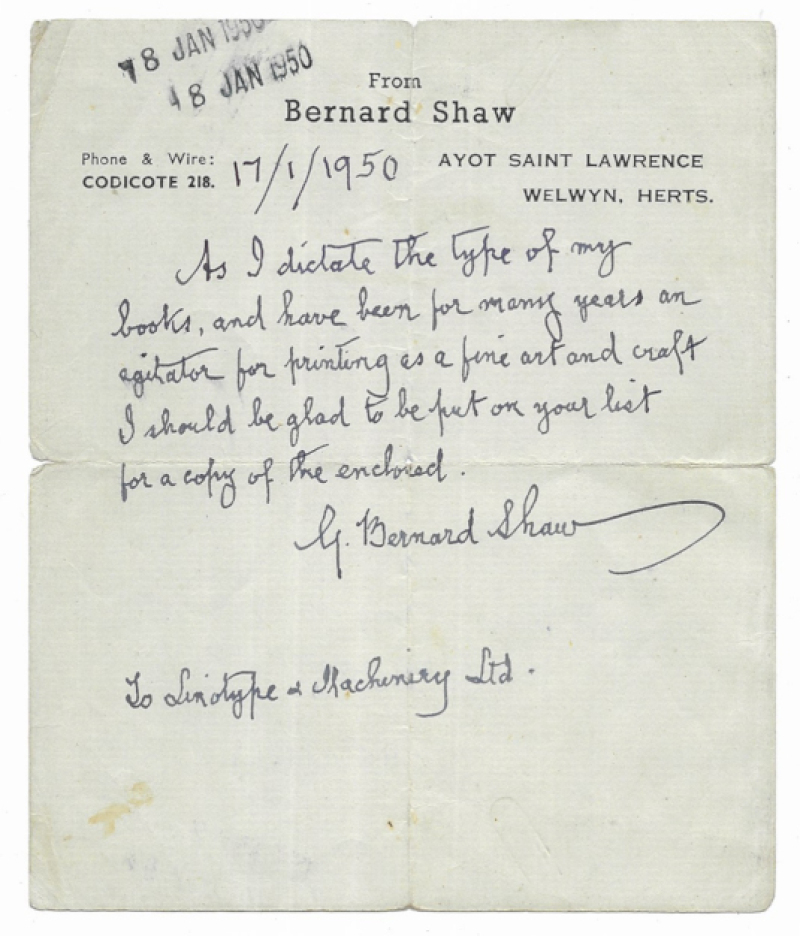 18 JAN 1950
18 JAN 1950
From
Bernard Shaw
Phone & Wire:
CODICOTE 218.
17/1/1950
AYOT SAINT LAWRENCE
WELWYN, HERTS.
As I dictate the type of my
books, and have been for many years an
agitator for printing as a fine art and craft
I should be glad to be put on your list
for a copy of the enclosed.
G. Bernard Shaw
To Linotype & Machinery Ltd.